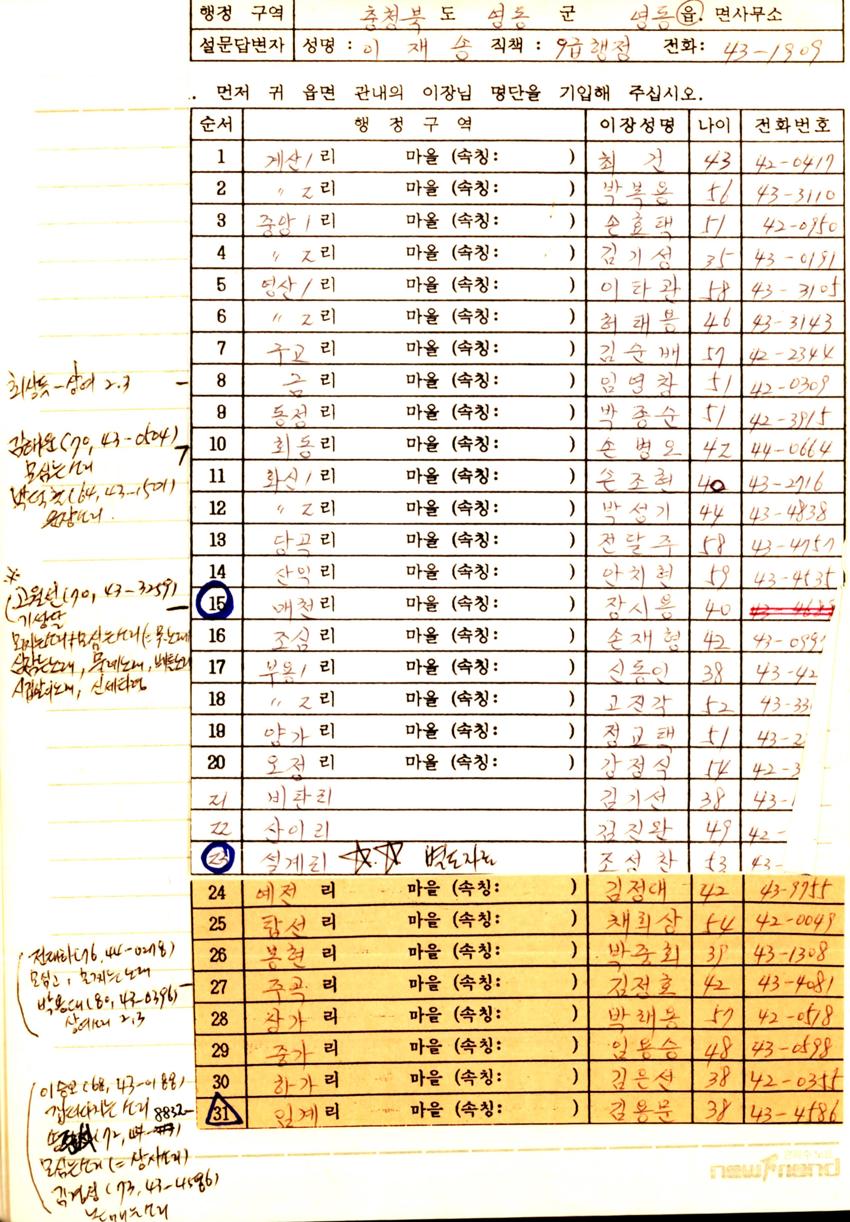 행정 구역 충청북 도 영동 군 영동 읍. 면사무소
설문답변자 성명 : 이 재 송 직책 : 9급행정 전화: 43-1909
. 먼저 귀 읍면 관내의 이장님 명단을 기입해 주십시오.
순서 행 정 구 역 이장성명 나이 전화번호
1 계산1리 마을 (속칭: ) 최 건 43 42-0417
2 〃 2리 마을 (속칭: ) 박복용 56 43-3110
3 중앙1리 마을 (속칭: ) 손효택 51 42-0950
4 〃 2리 마을 (속칭: ) 김기성 35 43-0191
5 영산1리 마을 (속칭: ) 이타관 58 43-3105
6 〃 2리 마을 (속칭: ) 허태봉 46 43-3143
7 주곡리 마을 (속칭: ) 김순배 57 42-2344
8 금리 마을 (속칭: ) 임영창 51 42-0309
9 동정리 마을 (속칭: ) 박종순 51 42-3915
10 회동리 마을 (속칭: ) 손병오 42 44-0664
11 화신1리 마을 (속칭: ) 손조현 40 43-2716
12 〃 2리 마을 (속칭: ) 박성기 44 43-4838
13 당곡리 마을 (속칭: ) 전달주 58 43-4757
14 산익리 마을 (속칭: ) 안치현 59 43-4535
15 매천리 마을 (속칭: ) 장시용 40
16 조심리 마을 (속칭: ) 손재형 42 43-099
17 부용1리 마을 (속칭: ) 신동인 38 43-42
18 〃 2리 마을 (속칭: ) 고진각 52 43-33
19 양가리 마을 (속칭: ) 정교택 51 43-2
20 오정리 마을 (속칭: ) 강정식 54 42-3
21 비탄리 김기선 38 43-
22 산이리 김진완 49 42-
23 설계리 ☆☆ 별도자료 조성찬 53 43-
24 예전리 마을 (속칭: ) 김정대 42 43-9755
25 탑선리 마을 (속칭: ) 채희상 54 42-0049
26 봉현리 마을 (속칭: ) 박중회 39 43-1308
27 주곡리 마을 (속칭: ) 김정호 42 43-4081
28 상가리 마을 (속칭: ) 박래용 57 42-0518
29 중가리 마을 (속칭: ) 임용승 48 43-0598
30 하가리 마을 (속칭: ) 김은선 38 42-0355
31 임계리 마을 (속칭: ) 김용문 38 43-4586
상여 2.3
김태운(70, 43-0504)
모심는소리
(64, 43-1501)
※
고월선(70, 43-3259)
물레노래, 베틀노래
신세타령
전재하(76, 44-0278)
박용대(80, 43-0396)
상여소리 2.3
이승모(68, 43-0188)
8832
모심는소리(=상사소리)
(73, 43-4586)
논매는소리